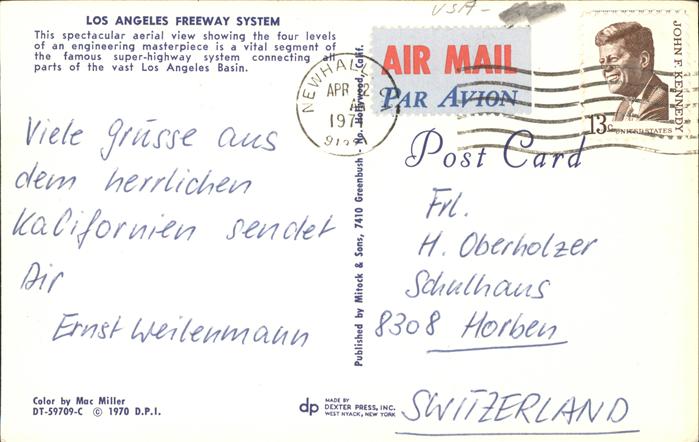 LOS ANGELES FREEWAY SYSTEM
This spectacular aerial view showing the four levels
of an engineering masterpiece is a vital segment of
the famous super-highway system connecting all
parts of the vast Los Angeles Basin.
Viele grüsse aus
dem herrlichen
Kalifornien sendet
Dir
Ernst Weilenmann
Color by Mac Miller
DT-59709-C © 1970 D.P.I.
Published by Mitock & Sons, 7410 Greenbush - No. Hollywood, Calif.
dp MADE BY
DEXTER PRESS, INC.
WEST NYACK, NEW YORK
USA-
NEWHALL
APR
197
AIR MAIL
PAR AVION
JOHN F. KENNEDY
13c UNITED STATES
Post Card
Frl.
H. Oberholzer
Schulhaus
8308 Horben
SWITZERLAND